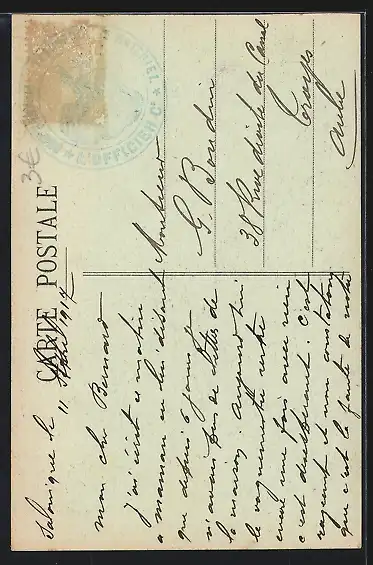 CARTE POSTALE
Salonique le
11 1917
mon cher Bernard
J'ai écrit ce matin
a maman en lui disant
que depuis 6 jours
n'avons pas de lettres de
la maison. aujourd'hui
le vaguemestre rentre
encore une fois avec rien
c'est désespérant. c'est
rageant et non constatons
que c'est la faute de votre
Monsieur
G. Bourdin
38 Rue droite du Canal
Troyes
Aube
L'OFFICIER
3€